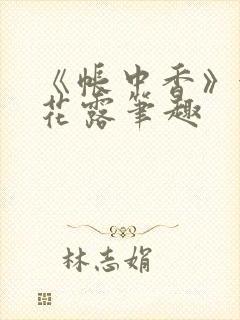 《帐中香》
花露笔趣
林志娟